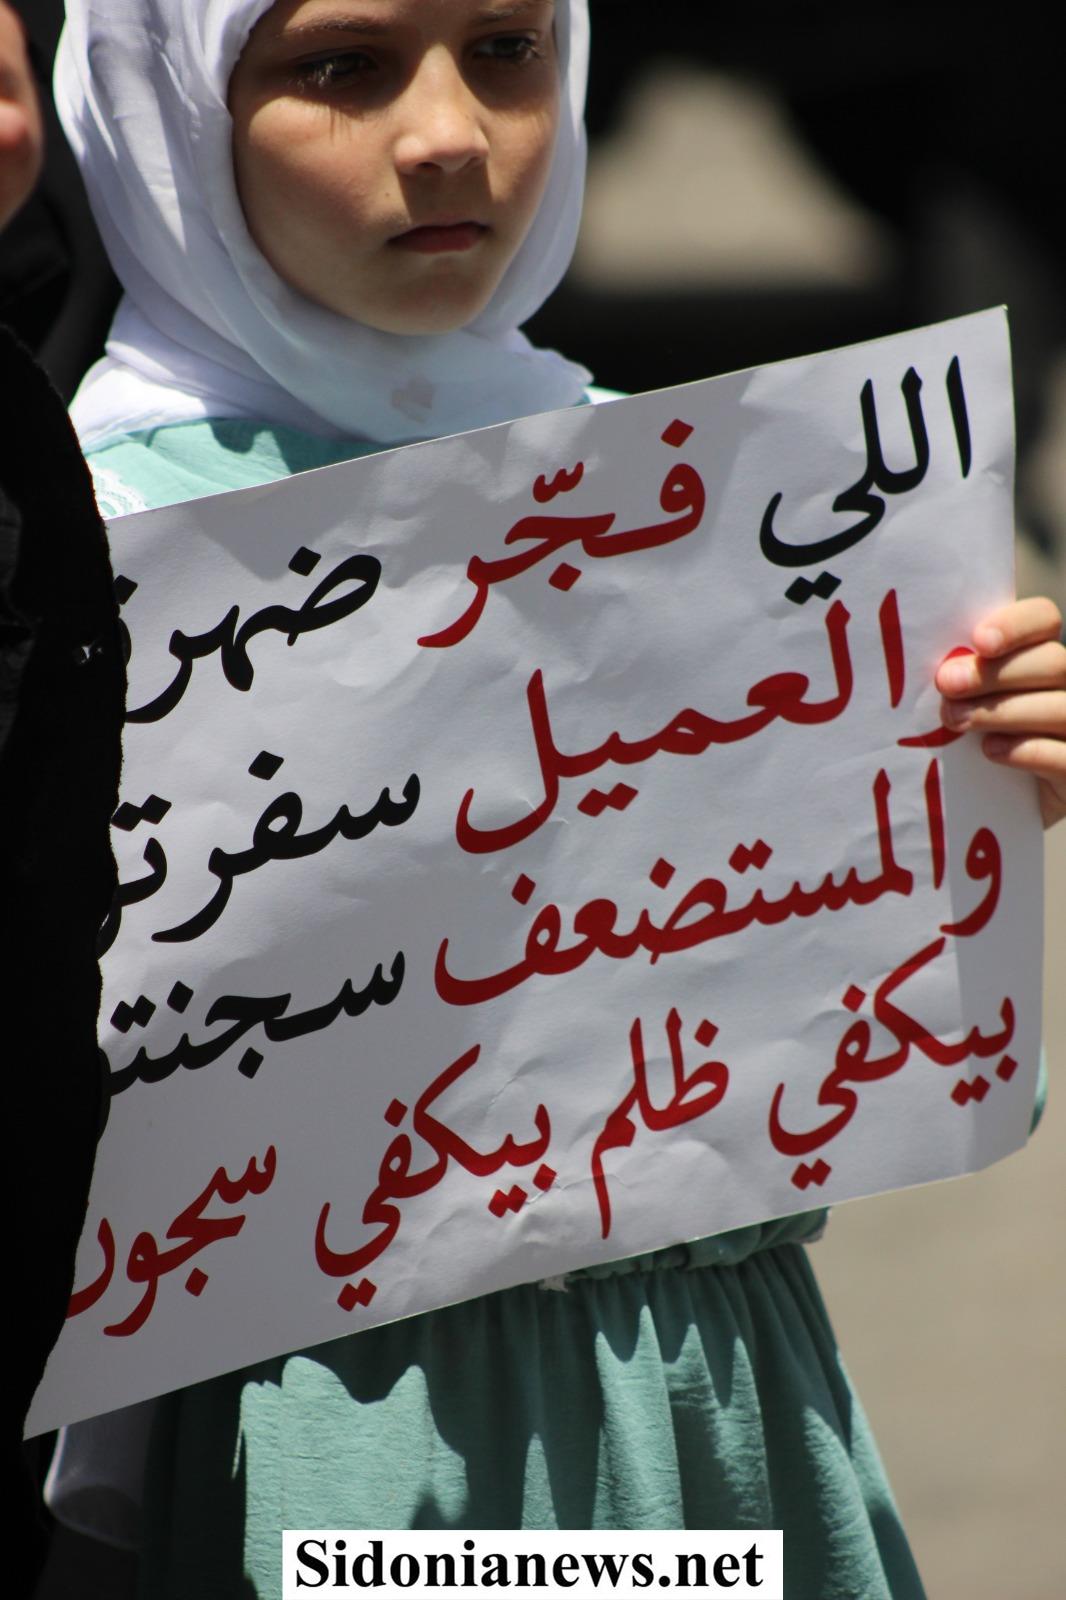 اللي فجّر
والعميل
والمستضعف
بيكفي ظلم بيكفي سجون
Sidonianews.net